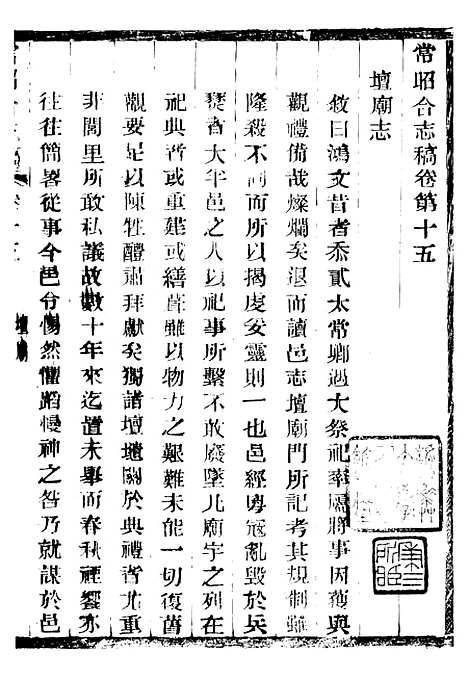 常昭合志稿卷第十五
壇廟志
敘曰鴻文昔者忝貳太常鄉過大祭祀率屬將事因獲與
觀禮備哉燦爛矣退而讀邑志壇廟門所記考其規制雖
隆殺不同而所以揭虔妥靈則一也邑經粵寇亂毀於兵
燹者大半邑之人以祀事所繫不敢廢墜凡廟宇之列在
祀典者或重建或繕葺雖以物力之艱難未能一切復舊
觀要足以陳牲醴肅拜獻矣獨諸壇壝關於典禮者尤重
非閭里所敢私議故數十年來迄置未舉而春秋禋饗亦
往往簡畧從事今邑令惕然懼蹈慢神之咎乃就謀於邑
壇廟